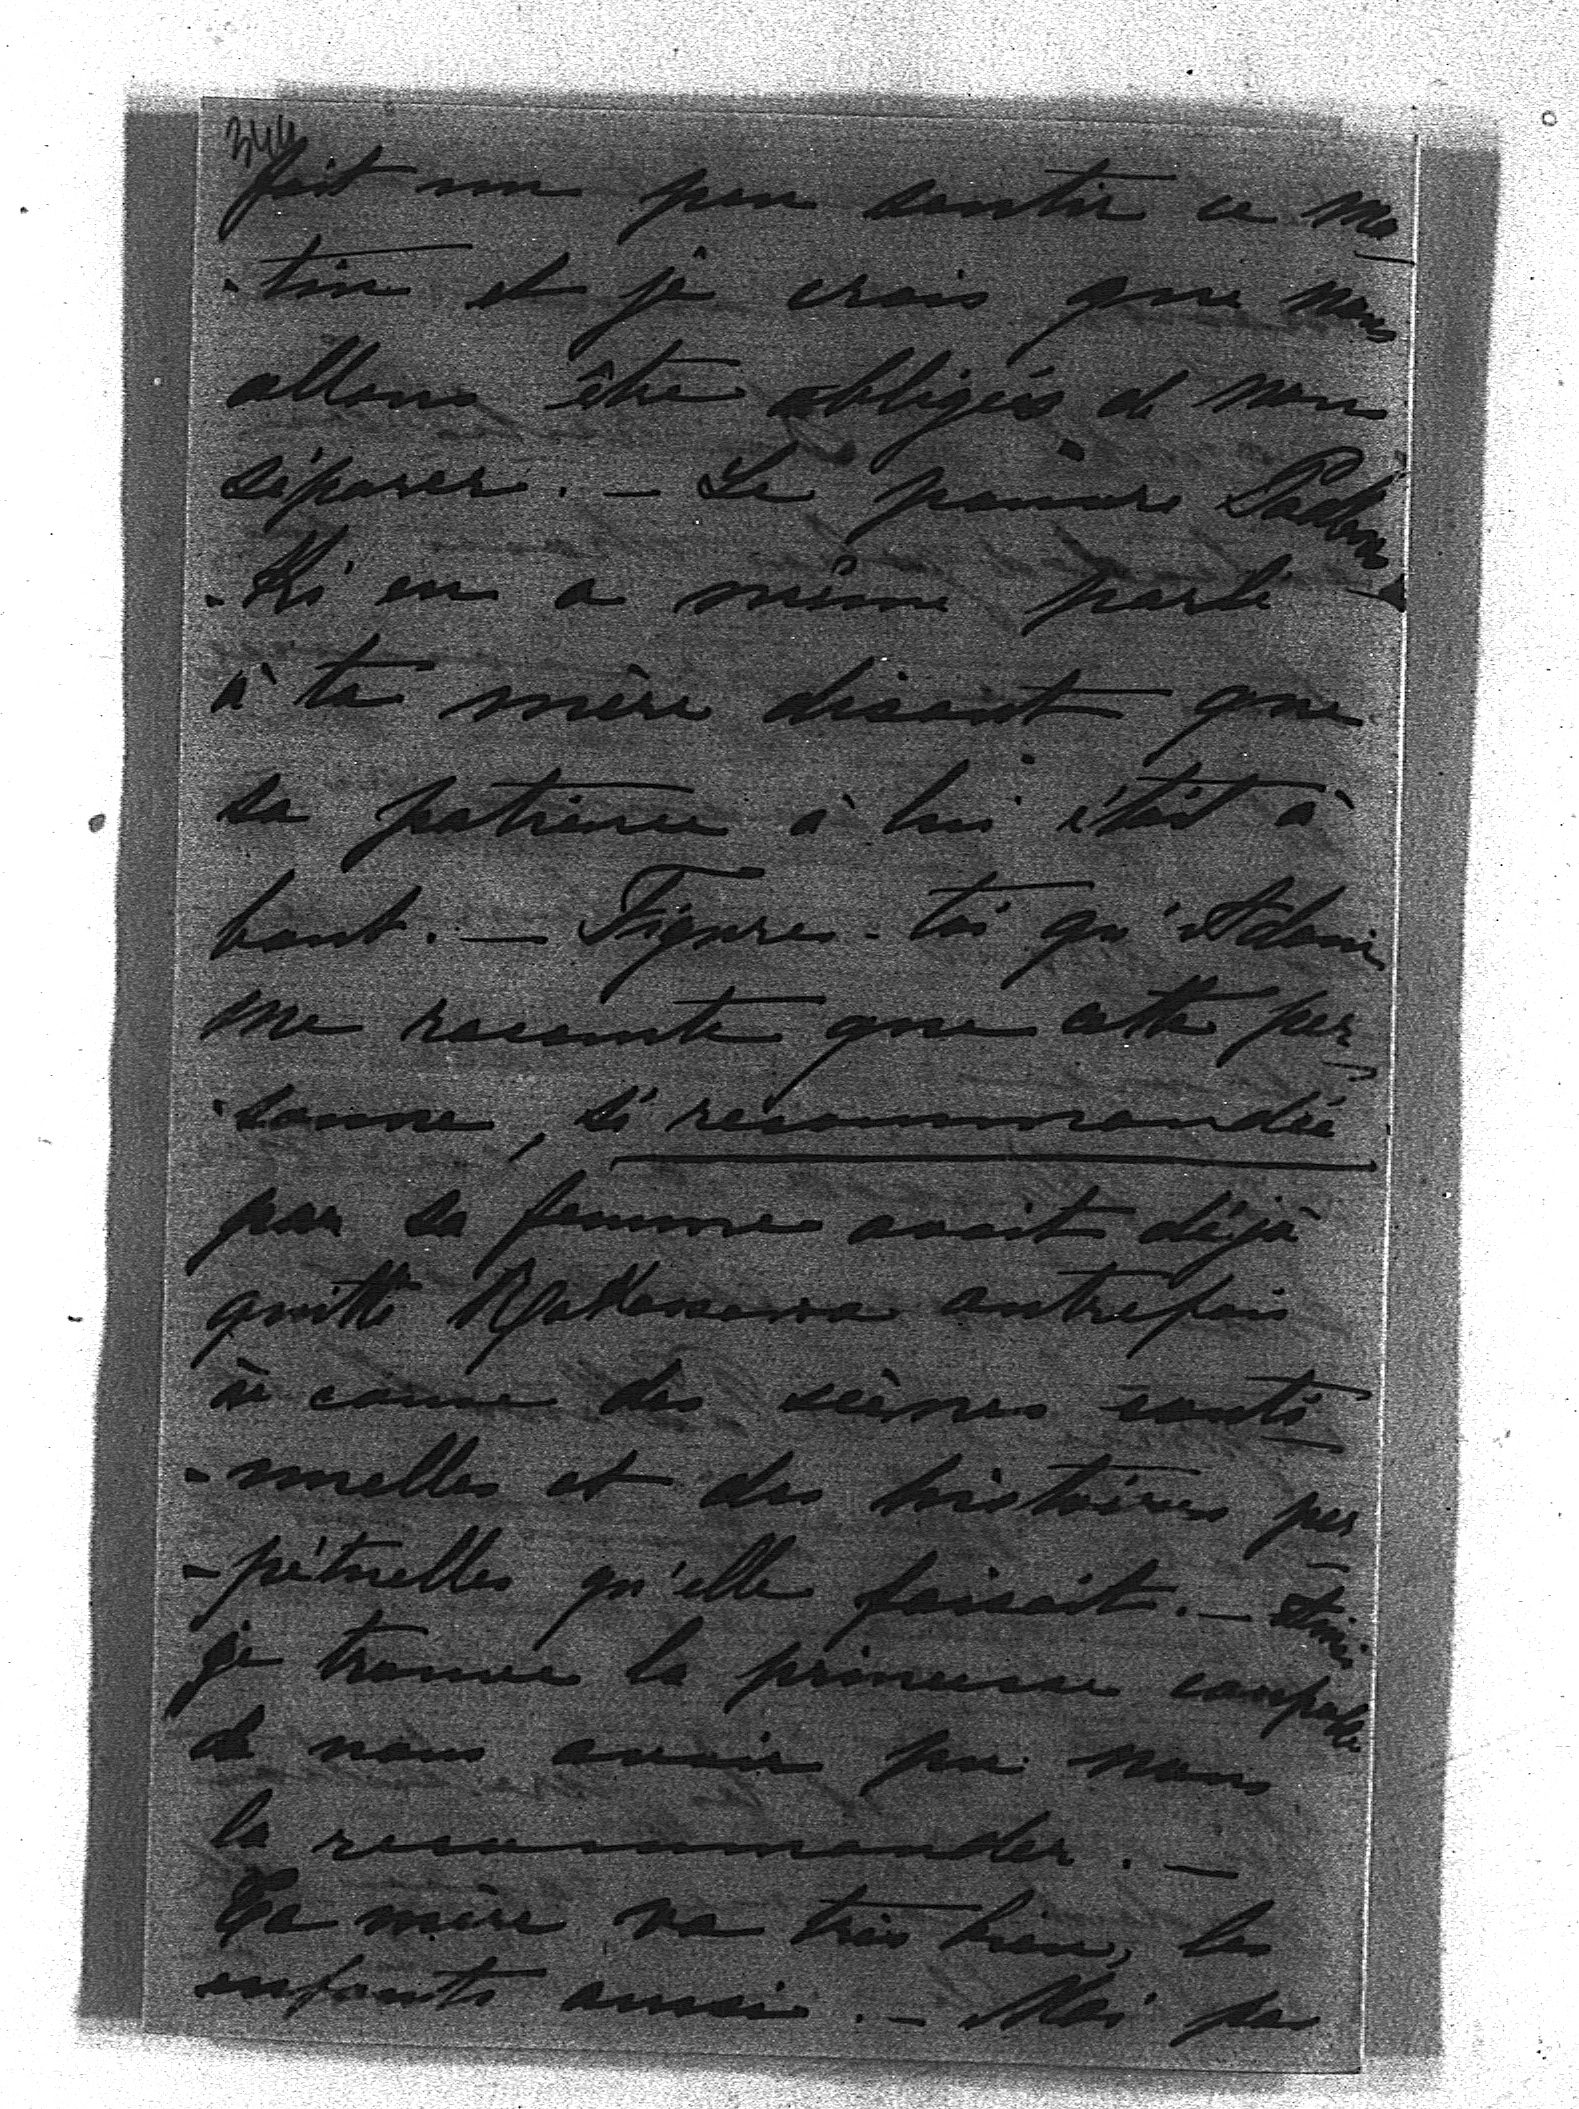 344
fait un peu sentir ce ma
-tin et je crois que nous
allons être obligés de nous
séparer. — Le pauvre
-ki en a même parlé
à ta mère disant que
sa patience à lui était à
bout. — Figures-toi qu'Adam
me raconte que cette per
-sonne, si recommandée
par sa femme avait déjà
quitté autrefois
à cause des scènes conti
-nuelles et des histoires per
-pétuelles qu'elle faisait. —
je trouve la princesse coupable
de nous avoir pu nous
la recommander. —
Ta mère va très bien, les
enfants aussi. — Moi pas